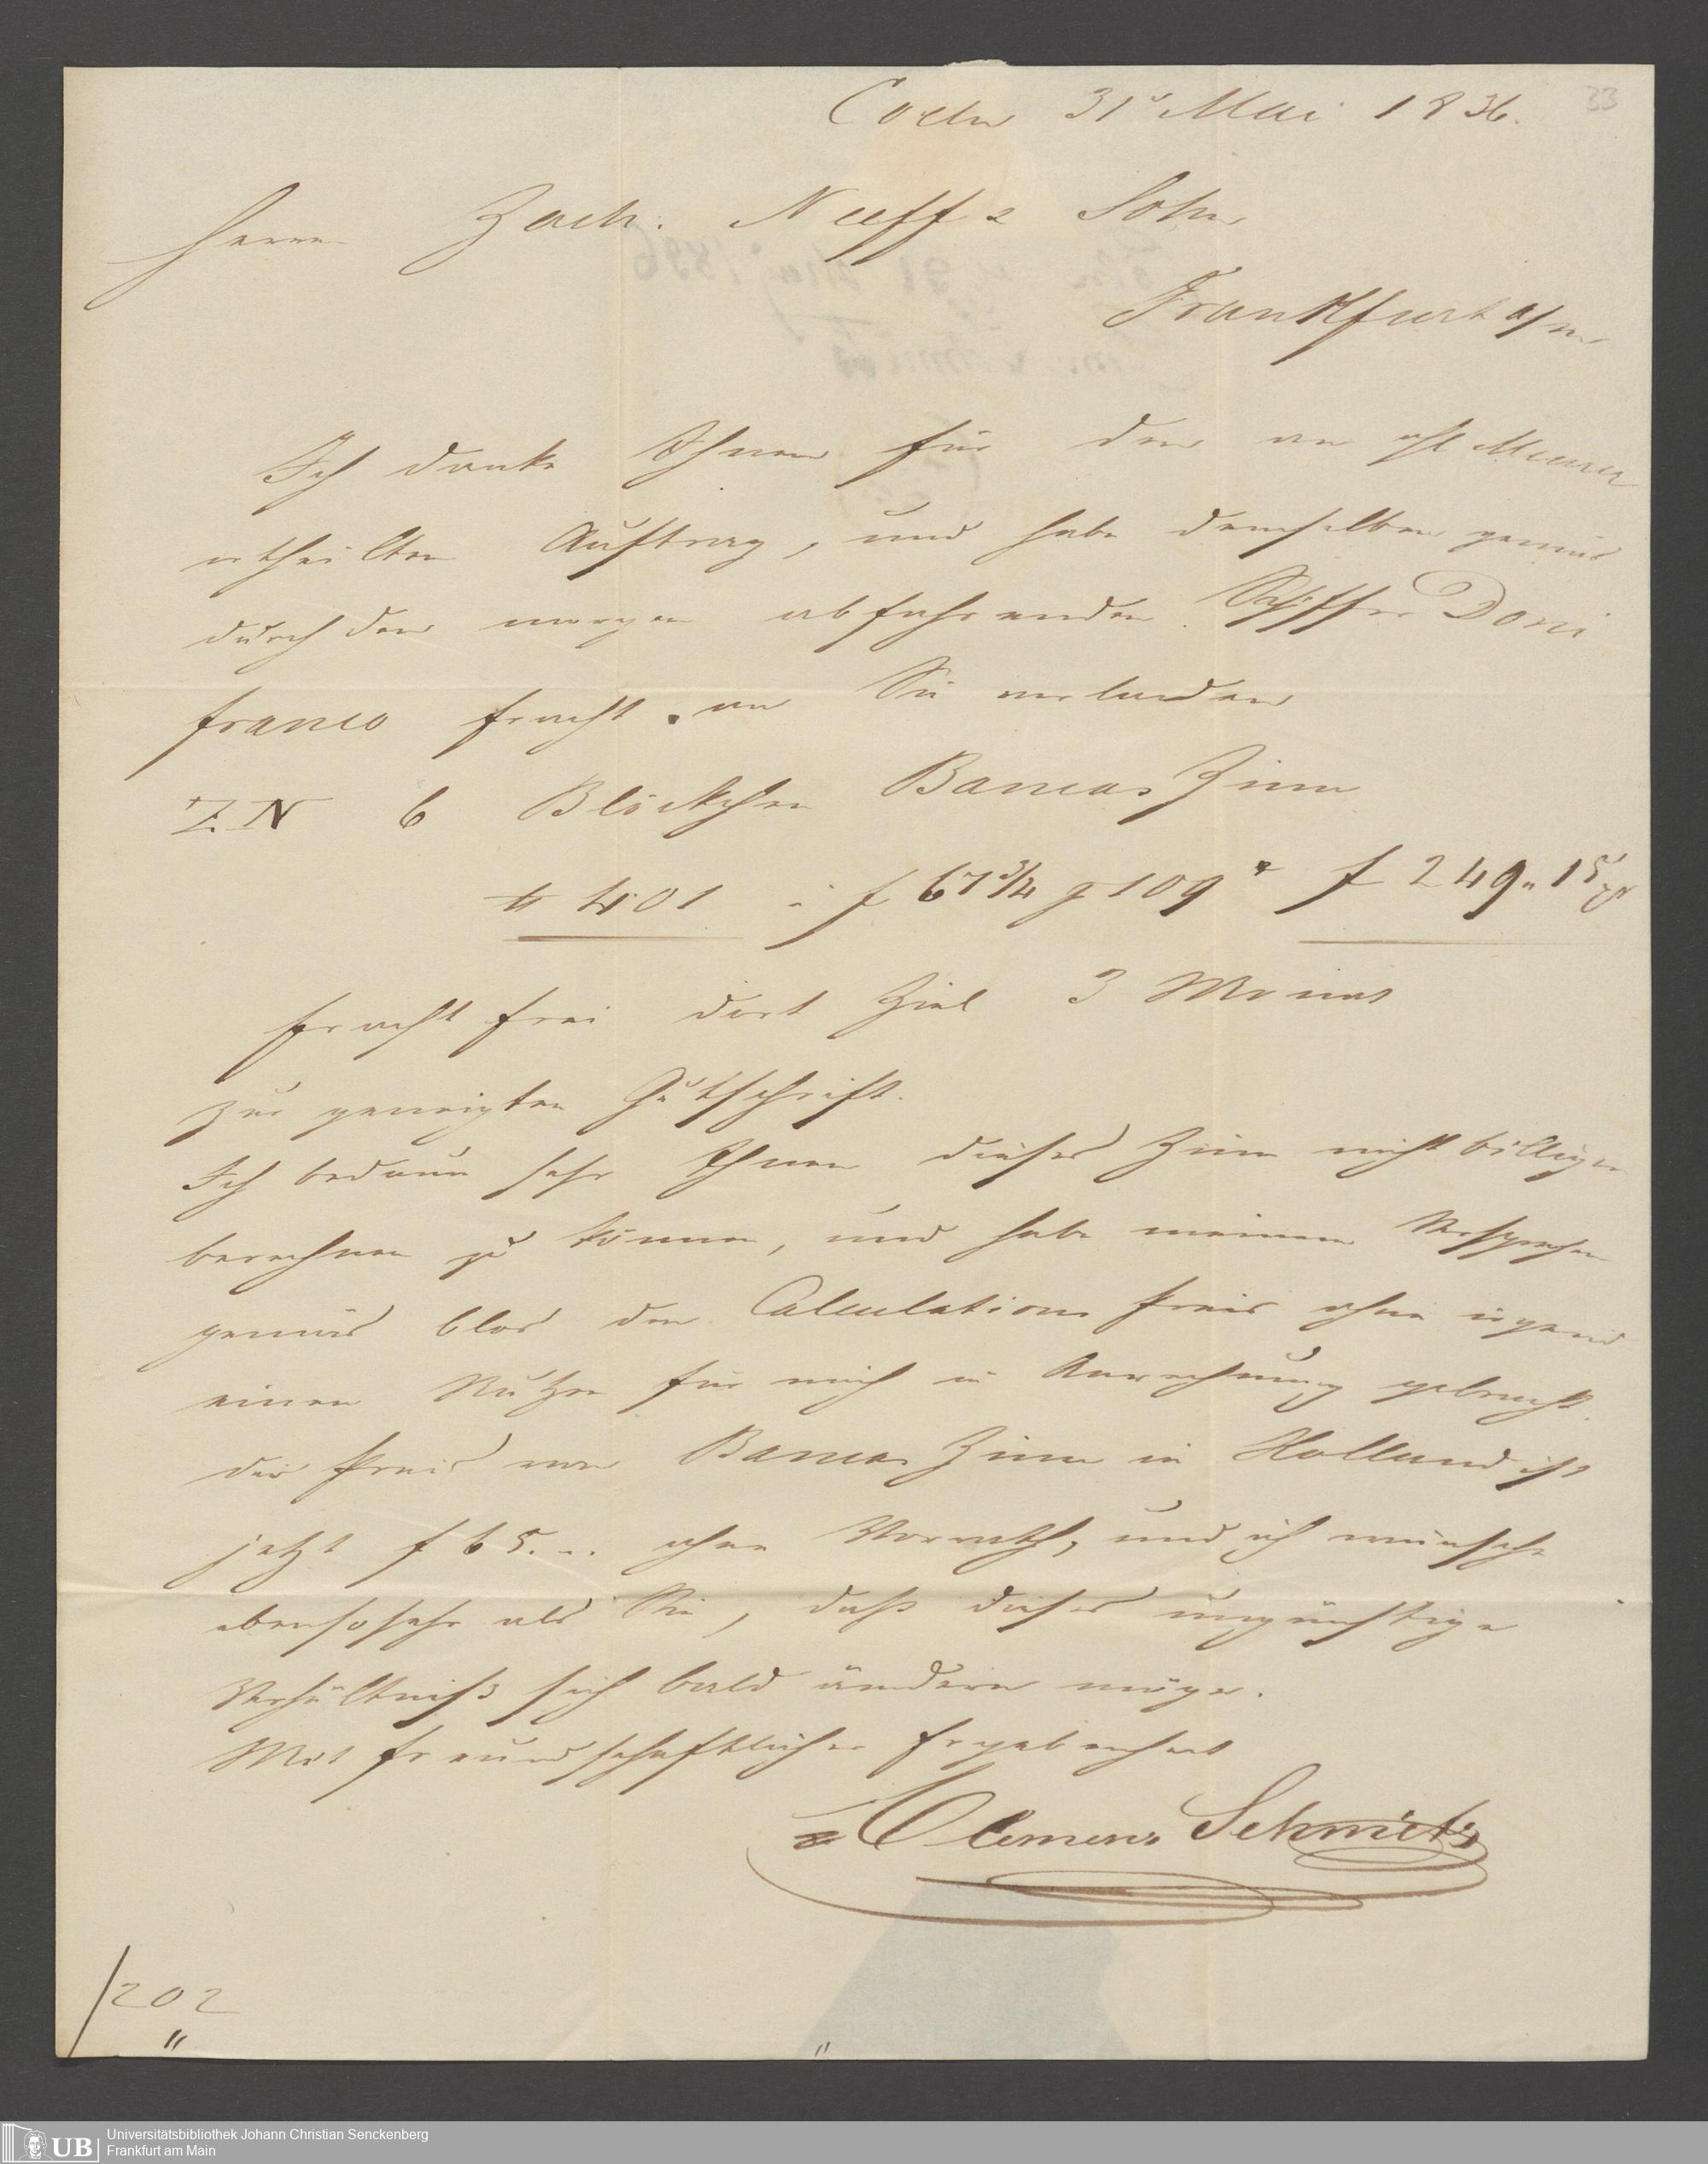 Coeln 31r Mai 1836.
33
Herrn Zach. Neeff & Sohn
Frankfurt a/m
Ich danke Ihnen für den an Hl Meurer
ertheilten Auftrag, und habe demselben gemäs
durch den morgen abfahrenden Schiffer Dorri
franco fracht an Sie verladen
ZN 6 Blöckchen Banca Zinn
℔ 401 à f 67¾ p 109 ℔ f 249 " 15
fracht frei dort Ziel 3 Monat
zur geneigten Gutschrift.
Ich bedaure sehr Ihnen dieses Zinn nicht billiger
berechnen zu können, und habe meinem Versprechen
gemäs blos den Calculations Preis ohne irgend
einen Nutzen für mich in Anrechnung gebracht.
der Preis von Banca Zinn in Holland ist
jetzt f 65.-. ohne Vorrath, und ich wünsche
ebensosehr als Sie, daß dieses ungünstige
Verhältniß sich bald ändern möge.
Mit freundschaftlicher Ergebenheit
Clemens Schmitz
/202
"
"
UB Universitätsbibliothek Johann Christian Senckenberg
Frankfurt am Main